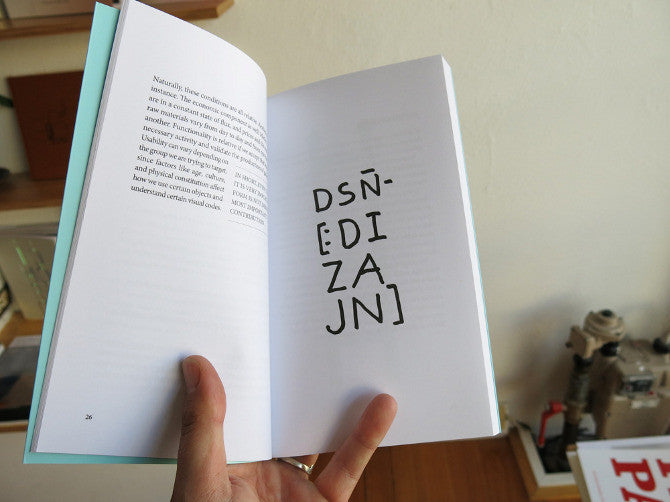 Naturally, these conditions are all relative. For
instance. The economic component as we know
are in a constant state of flux, and prices and
raw materials vary from day to day and from
another. Functionality is relative if we accept
necessary activity and validate the production
Usability can vary depending on
the group we are trying to target,
since factors like age, culture,
and physical constitution affect
how we use certain objects and
understand certain visual codes.
IN SHORT,
IT IS VERY
FORM IS NOT
MOST IMPORTANT
CONTRIBUTION
26
DSÑ-
[:DI
ZA
JN]
P